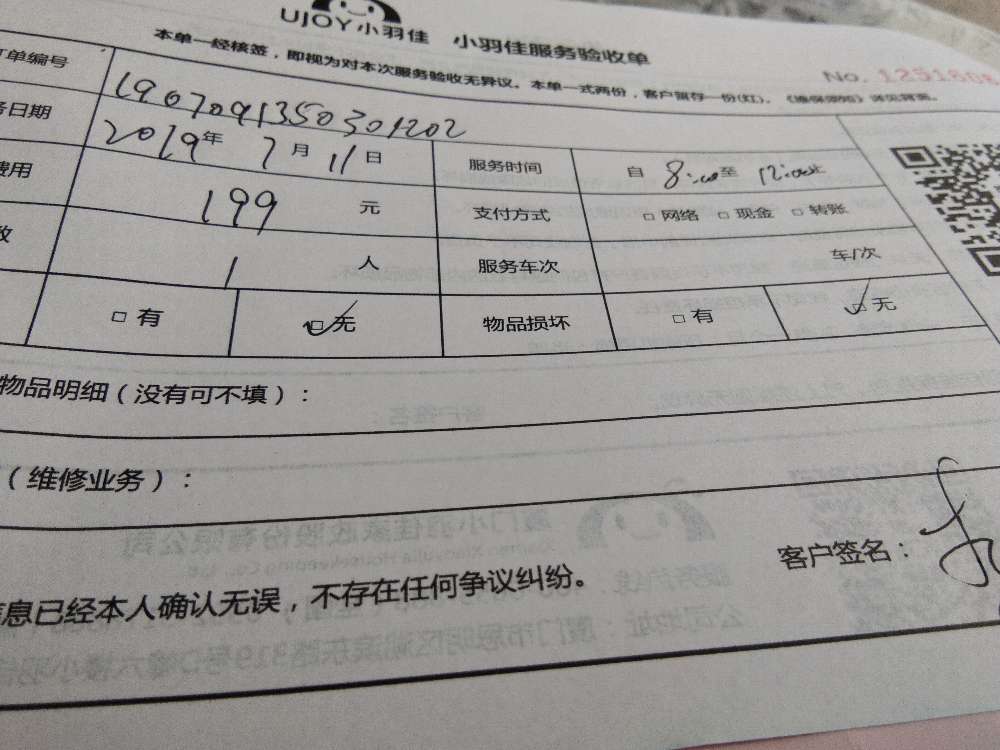 UJOY小羽佳 小羽佳服务验收单
本单一经核签，即视为对本次服务验收无异议。本单一式两份，客户留存一份(红)。《维保须知》详见背面。
No. 1251808
订单编号 1907091350301202
务日期 2019年 7月 11日 服务时间 自 8:00至 12:00止
费用 199 元 支付方式 □ 网络 □ 现金 □ 转账
数 1 人 服务车次 车/次
□ 有 ✓□ 无 物品损坏 □ 有 ✓□ 无
物品明细（没有可不填）：
（维修业务）：
客户签名：
信息已经本人确认无误，不存在任何争议纠纷。